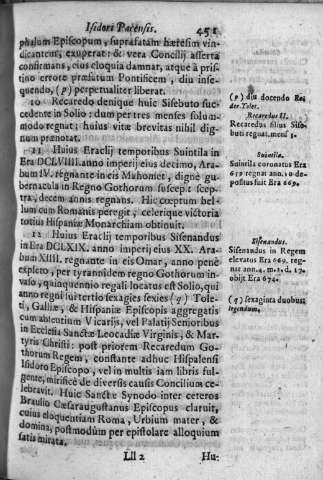 Isidori Pacensis. 451
phalum Episcopum, suprafatam hæresim vin-
dicantem, exuperat: & vera Concilij asserta
confirmans, eius eloquia damnat, atque à pris-
tino errore præfatum Pontificem, diu inse-
quendo, (p) perpetualiter liberat.
10 Recaredo denique huic Sisebuto suc-
cedente in Solio: dum per tres menses solum-
modo regnat; huius vitæ brevitas nihil dig-
num prænotat.
11 Huius Eraclij temporibus Suintila in
Era DCLVIIII. anno imperij eius decimo, Ara-
bum IV. regnante in eis Mahomet, dignè gu-
bernacula in Regno Gothorum suscepit scep-
tra, decem annis regnans. Hic cœptum bel-
lum cum Romanis peregit, celerique victoria
totius Hispaniæ Monarchiam obtinuit.
12 Huius Eraclij temporibus Sisenandus
in Era DCLXIX. anno imperij eius XX. Ara-
bum XIIII. regnante in eis Omar, anno penè
expleto, per tyrannidem regno Gothorum in-
vaso, quinquennio regali locatus est Solio, qui
anno regni sui tertio sexagies sexies (q) Tole-
ti, Galliæ, & Hispaniæ Episcopis aggregatis
cum absentium Vicarijs, vel Palatij Senioribus
in Ecclesia Sanctæ Leocadiæ Virginis, & Mar-
tyris Christi: post priorem Recaredum Go-
thorum Regem, constante adhuc Hispalensi
Isidoro Episcopo, vel in multis iam libris ful-
gente, mirificè de diversis causis Concilium ce-
lebravit. Huic Sanctæ Synodo inter ceteros
Braulio Cæsaraugustanus Episcopus claruit,
cuius eloquentiam Roma, Urbium mater, &
domina, postmodùm per epistolare alloquium
satis mirata.
Lll 2 Hu-
(p) diu docendo
der. Tolet.
Recaredus II.
Recaredus filius Sise-
buti regnat mens. 3.
Suintila.
Suintila coronatus Era
659 regnat ann. 10 de-
positus fuit Era 669.
Sisenandus.
Sisenandus in Regem
elevatus Era 669. reg-
nat
obijt Era 674.
(q) sexaginta duobus
legendum.